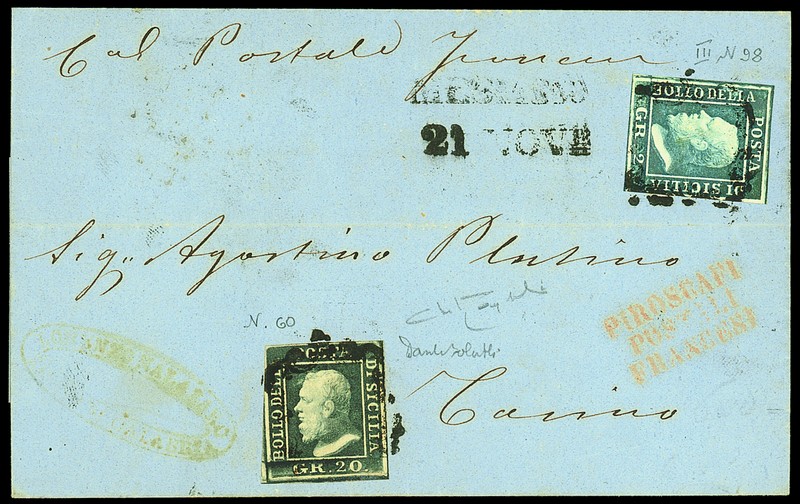 Col Postale Francese
III N 98
BOLLO DELLA
POSTA
DI SICILIA
GR. 2
21 NOVE
Sig.r Agostino Plutino
PIROSCAFI
POSTALI
FRANCESI
N. 60
Torino
POSTA
BOLLO DELLA
DI SICILIA
GR. 20.